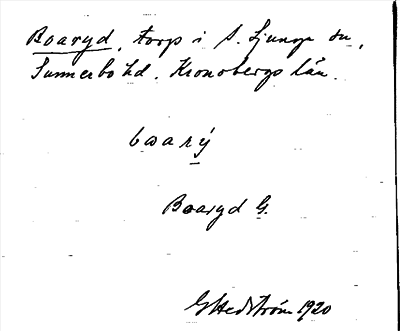 Boaryd, torp i S. Ljunga sn,
Sunnerbo hd. Kronobergs län.
bωarý
Boaryd G.
GHedström 1920